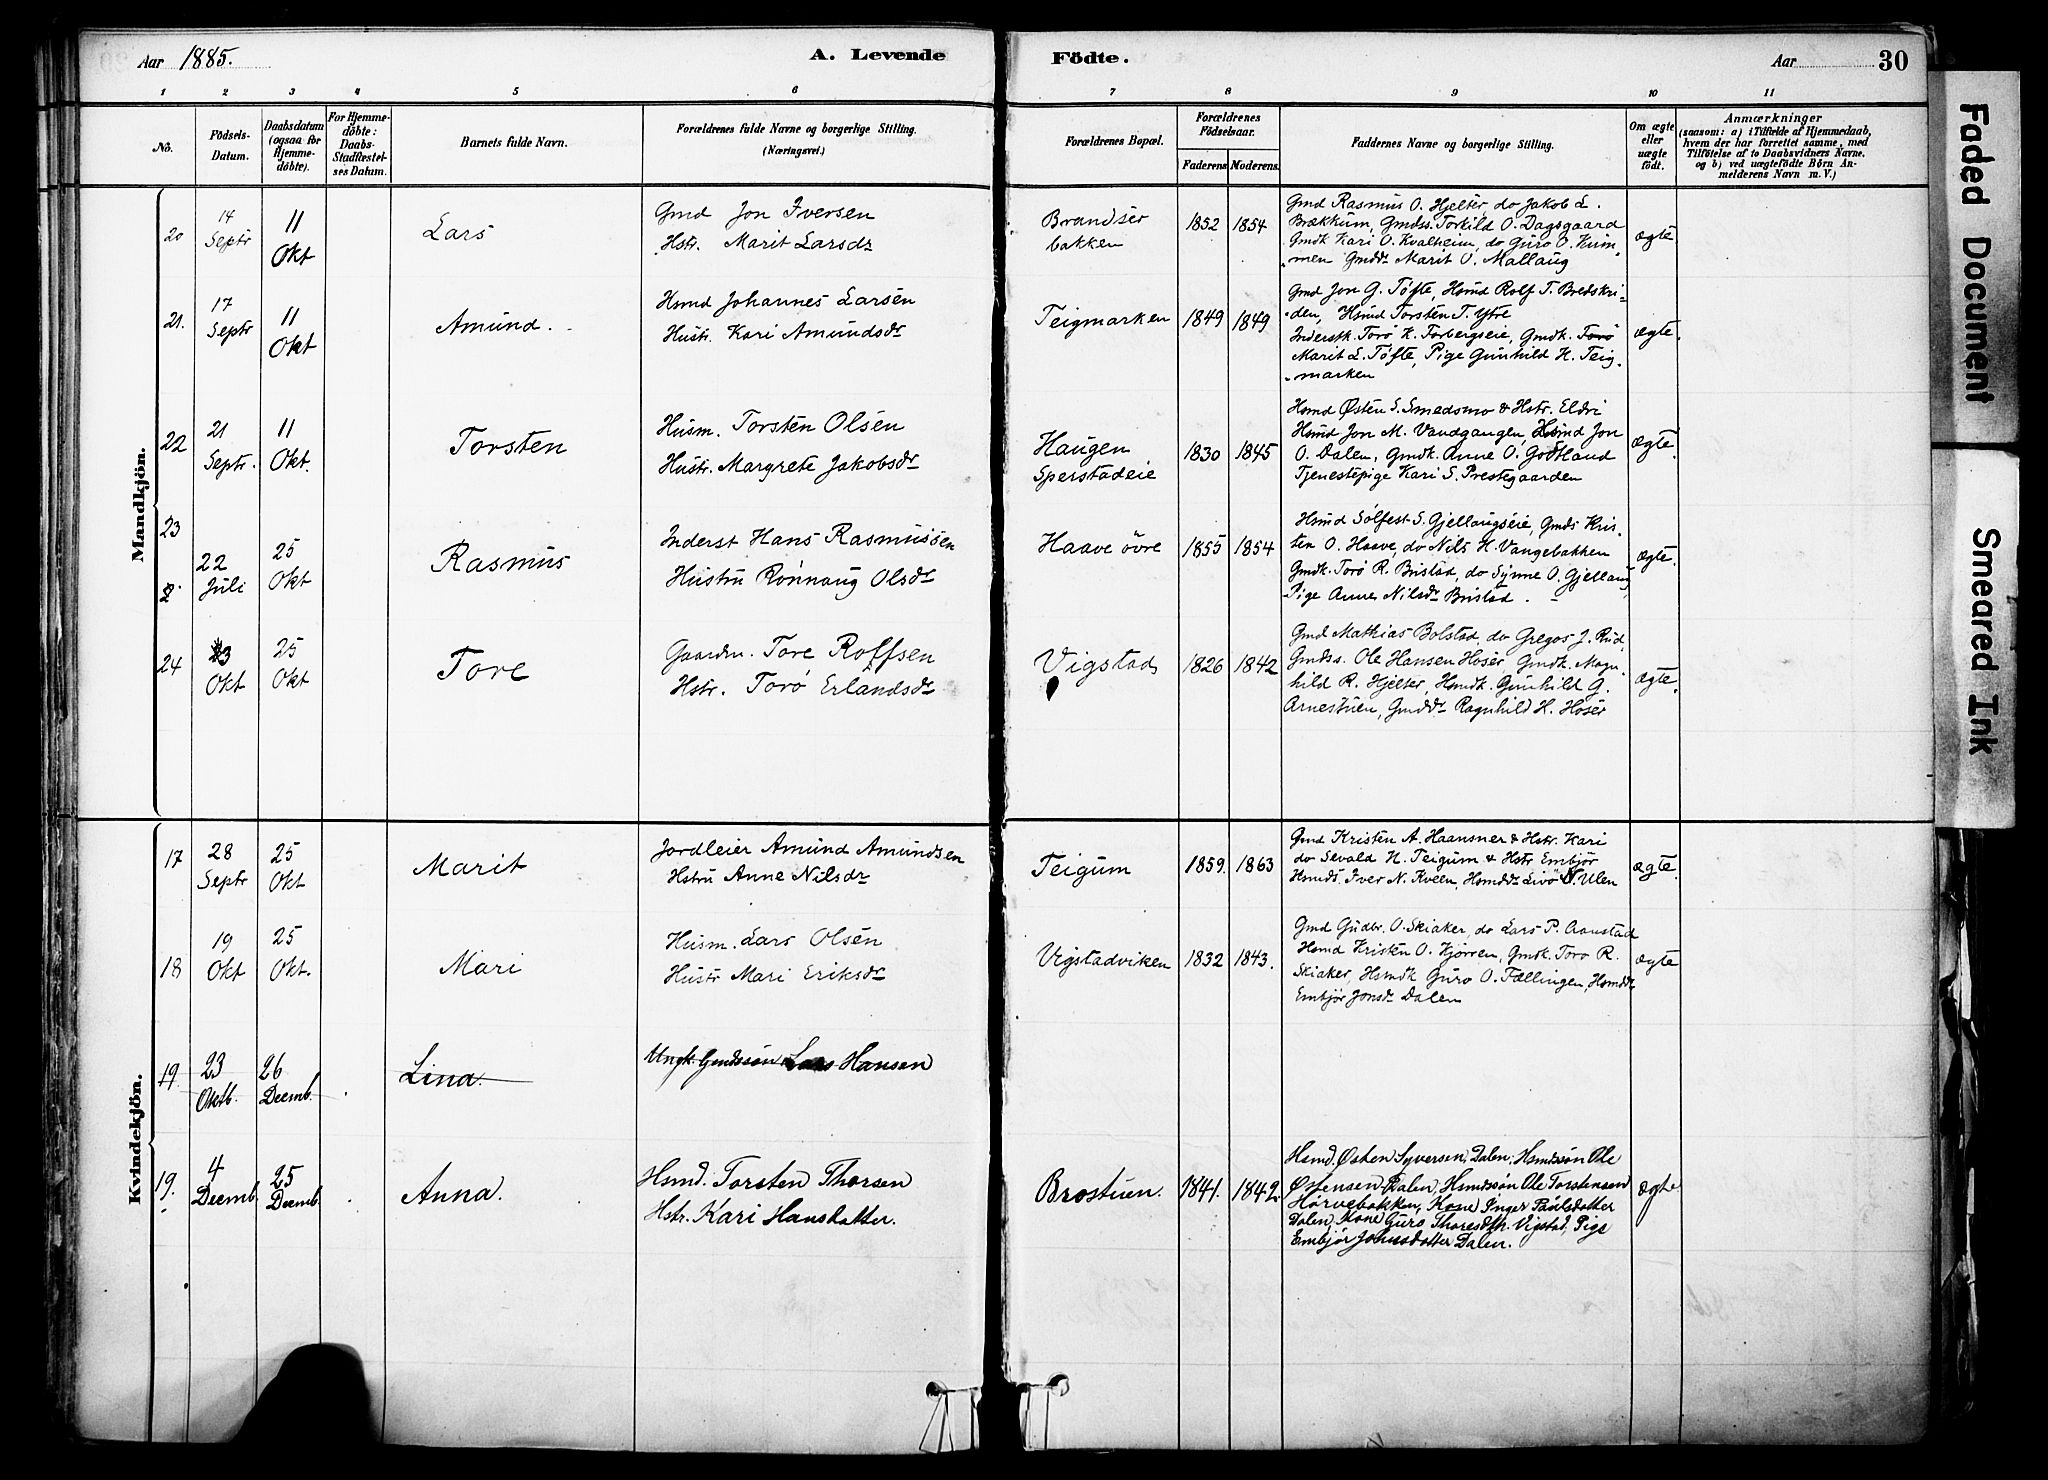 Aar 1885.
A. Levende
Födte.
Aar
30
1 2 3 4 5 6 7 8 9 10 11
No.
Födsels-Datum.
Daabsdatum (ogsaa for Hjemmedöbte).
For Hjemmedöbte: Daabs-Stadfæstelses Datum.
Barnets fulde Navn.
Forældrenes fulde Navne og borgerlige Stilling.
(Næringsvei.)
Forældrenes Bopæl.
Forældrenes Födselsaar.
Faderens. Moderens.
Faddernes Navne og borgerlige Stilling.
Om ægte eller uægte födt.
Anmærkninger
(saasom: a) i Tilfælde af Hjemmedaab, hvem der har forrettet samme, med Tilföielse af to Daabsvidners Navne, og b) ved uægtefödte Börn Anmelderens Navn m. V.)
Mandkjön.
20 14 Septr 11 Okt Lars
Gmd Jon Iversen
Hstr. Marit Larsdr
Brandsér bakken 1852 1854
Gmd Rasmus O. Hjelter, do Jakob L.
Brækkum, Gmdss. Torkild O. Dagsgaard
Gmdk Kari O. Kvalheim, do Guro O. Kum
men Gmddr Marit O. Mallaug
ægte
21. 17 Septr 11 Okt Amund.
Hsmd Johannes Larsen
Hustr. Kari Amundsdr
Teigmarken 1849 1849
Gmd Jon G. Tøfte, Hsmd Rolf T. Bredskri-
den, Hsmd Torsten T. Ytre
Inderstk. Torø K. Forbergseie, Gmdk. Torø
Marit L. Tøfte, Pige Gunhild H. Teig
marken
ægte.
22 21 Septr. 11 Okt. Torsten
Husm. Torsten Olsen
Hustr. Margrete Jakobsdr
Haugen Sperstadeie 1830 1845
Hsmd Østen S. Smedsmo & Hstr. Eldri
Hsmd Jon M. Vandgangen, Hsmd Jon
O. Dalen, Gmdk. Anne O. Godtland
Tjenestepige Kari S. Prestegaarden
Ægte.
23 22 Juli 25 Okt Rasmus
Inderst Hans Rasmussen
Hustru Rønnaug Olsdr
Haave øvre 1855 1854
Hsmd Solfest S. Gjellaugseie, Gmds Kris-
ten O. Haave, do Nils H. Vangebakken
Gmdk. Torø R. Bristad, do Synne O. Gjellaug
Pige Anne Nilsdr Bristad.
Ægte.
24 23 Okt 25 Okt Tore
Gaardm. Tore Rolfsen
Hstr. Torø Erlandsdr
Vigstad 1826 1842
Gmd Mathias Bolstad, do Gregos J. Rud
Gmdss. Ole Hansen Hosér, Gmdk. Magn
hild R. Hjelter, Hsmdk. Gunhild G.
Arnestuen, Gmddr Ragnhild H. Hosér
Ægte.
Kvindekjön.
17 28 Septr 25 Okt Marit
Jordleier Amund Amundsen
Hstru Anne Nilsdr
Teigum 1859. 1863
Gmd Kristen A. Haansner & Hstr. Kari
do Sevald H. Teigum & Hstr Embjør
Hsmds. Iver N. Kveen, Hsmddr Livø N. Ulen
Ægte.
18 19 Okt 25 Okt. Mari
Husm. Lars Olsen
Hustr Mari Eriksdr
Vigstadviken 1832 1843.
Gmd Gudbr. O. Skiaker, do Lars P. Aanstad
Hsmd Kristen O. Kjørren, Gmdk. Toro R.
Skiaker, Hsmdk Guro O. Fællingen, Hsmddr
Embjør Jonsdr Dalen
ægte
19. 23 Oktb. 26 Decmb. Lina.
Ungk. Gmdssøn Lars Hansen
19. 4 Decmb. 25 Decmb Anna.
Hsmd. Torsten Thorsen
Hstr. Kari Hansdatter.
Brostuen. 1841. 1842.
Hsmd. Østen Syversen, Dalen, Hsmdssøn Ole
Østensen Dalen, Hsmdssøn Ole Torstensen
Hørvebakken, Kone Inger Paulsdatter
Dalen, Kone Guro Thoresdtr. Vigstad, Pige
Embjør Johnsdatter Dalen.
ægte
Faded Document
Smeared Ink